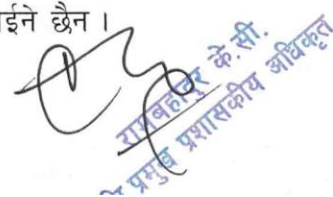 ईने छैन ।
रामबहादुर के.सी.
प्रमुख प्रशासकीय अधिकृत